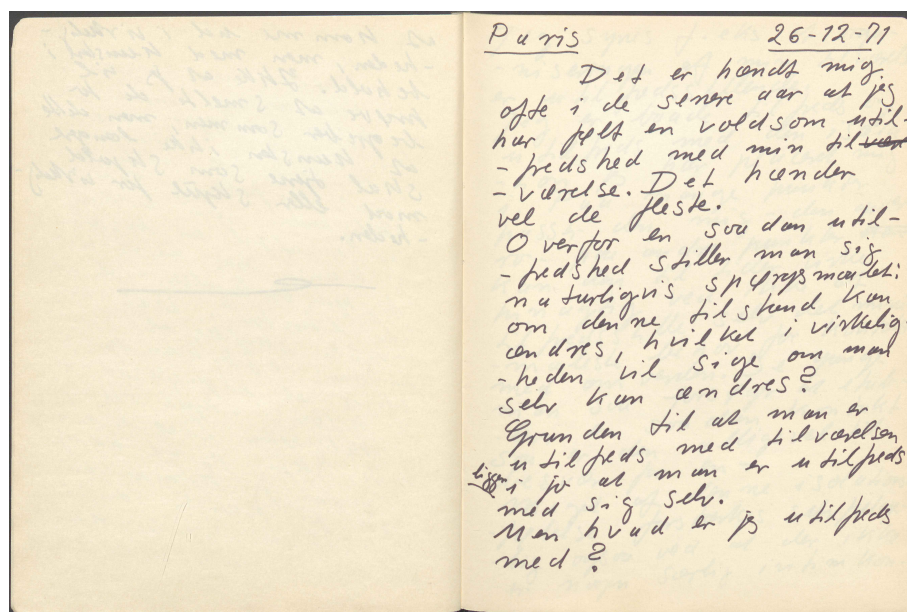 Paris 26-12-71
Det er hændt mig
ofte i de senere aar at jeg
har følt en voldsom util-
-fredshed med min tilvær
-værelse. Det hænder
vel de fleste.
Overfor en saadan util-
-fredshed stiller man sig
naturligvis spørgsmaalet:
om denne tilstand kan
ændres, hvilket i virkelig-
-heden vil sige om man
selv kan ændres?
Grunden til at man er
utilfreds med tilværelsen
ligger i jo at man er utilfreds
med sig selv.
Men hvad er jeg utilfreds
med?